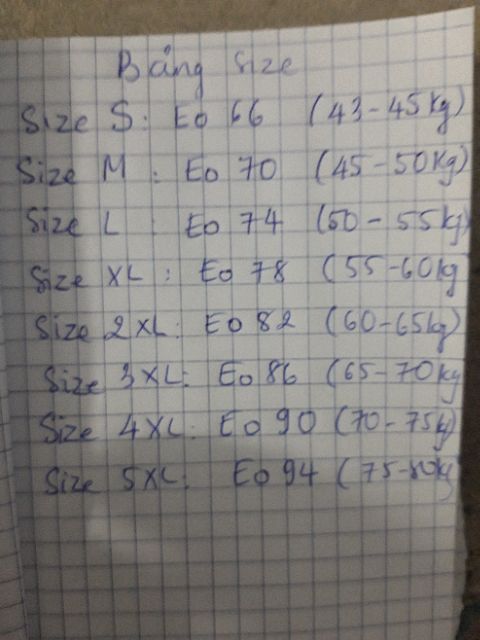 Bảng size
Size S: Eo 66 (43-45kg)
Size M: Eo 70 (45-50kg)
Size L: Eo 74 (50-55kg)
Size XL: Eo 78 (55-60kg
Size 2XL: Eo 82 (60-65kg)
Size 3XL: Eo 86 (65-70kg
Size 4XL: Eo 90 (70-75kg)
Size 5XL: Eo 94 (75-80kg)